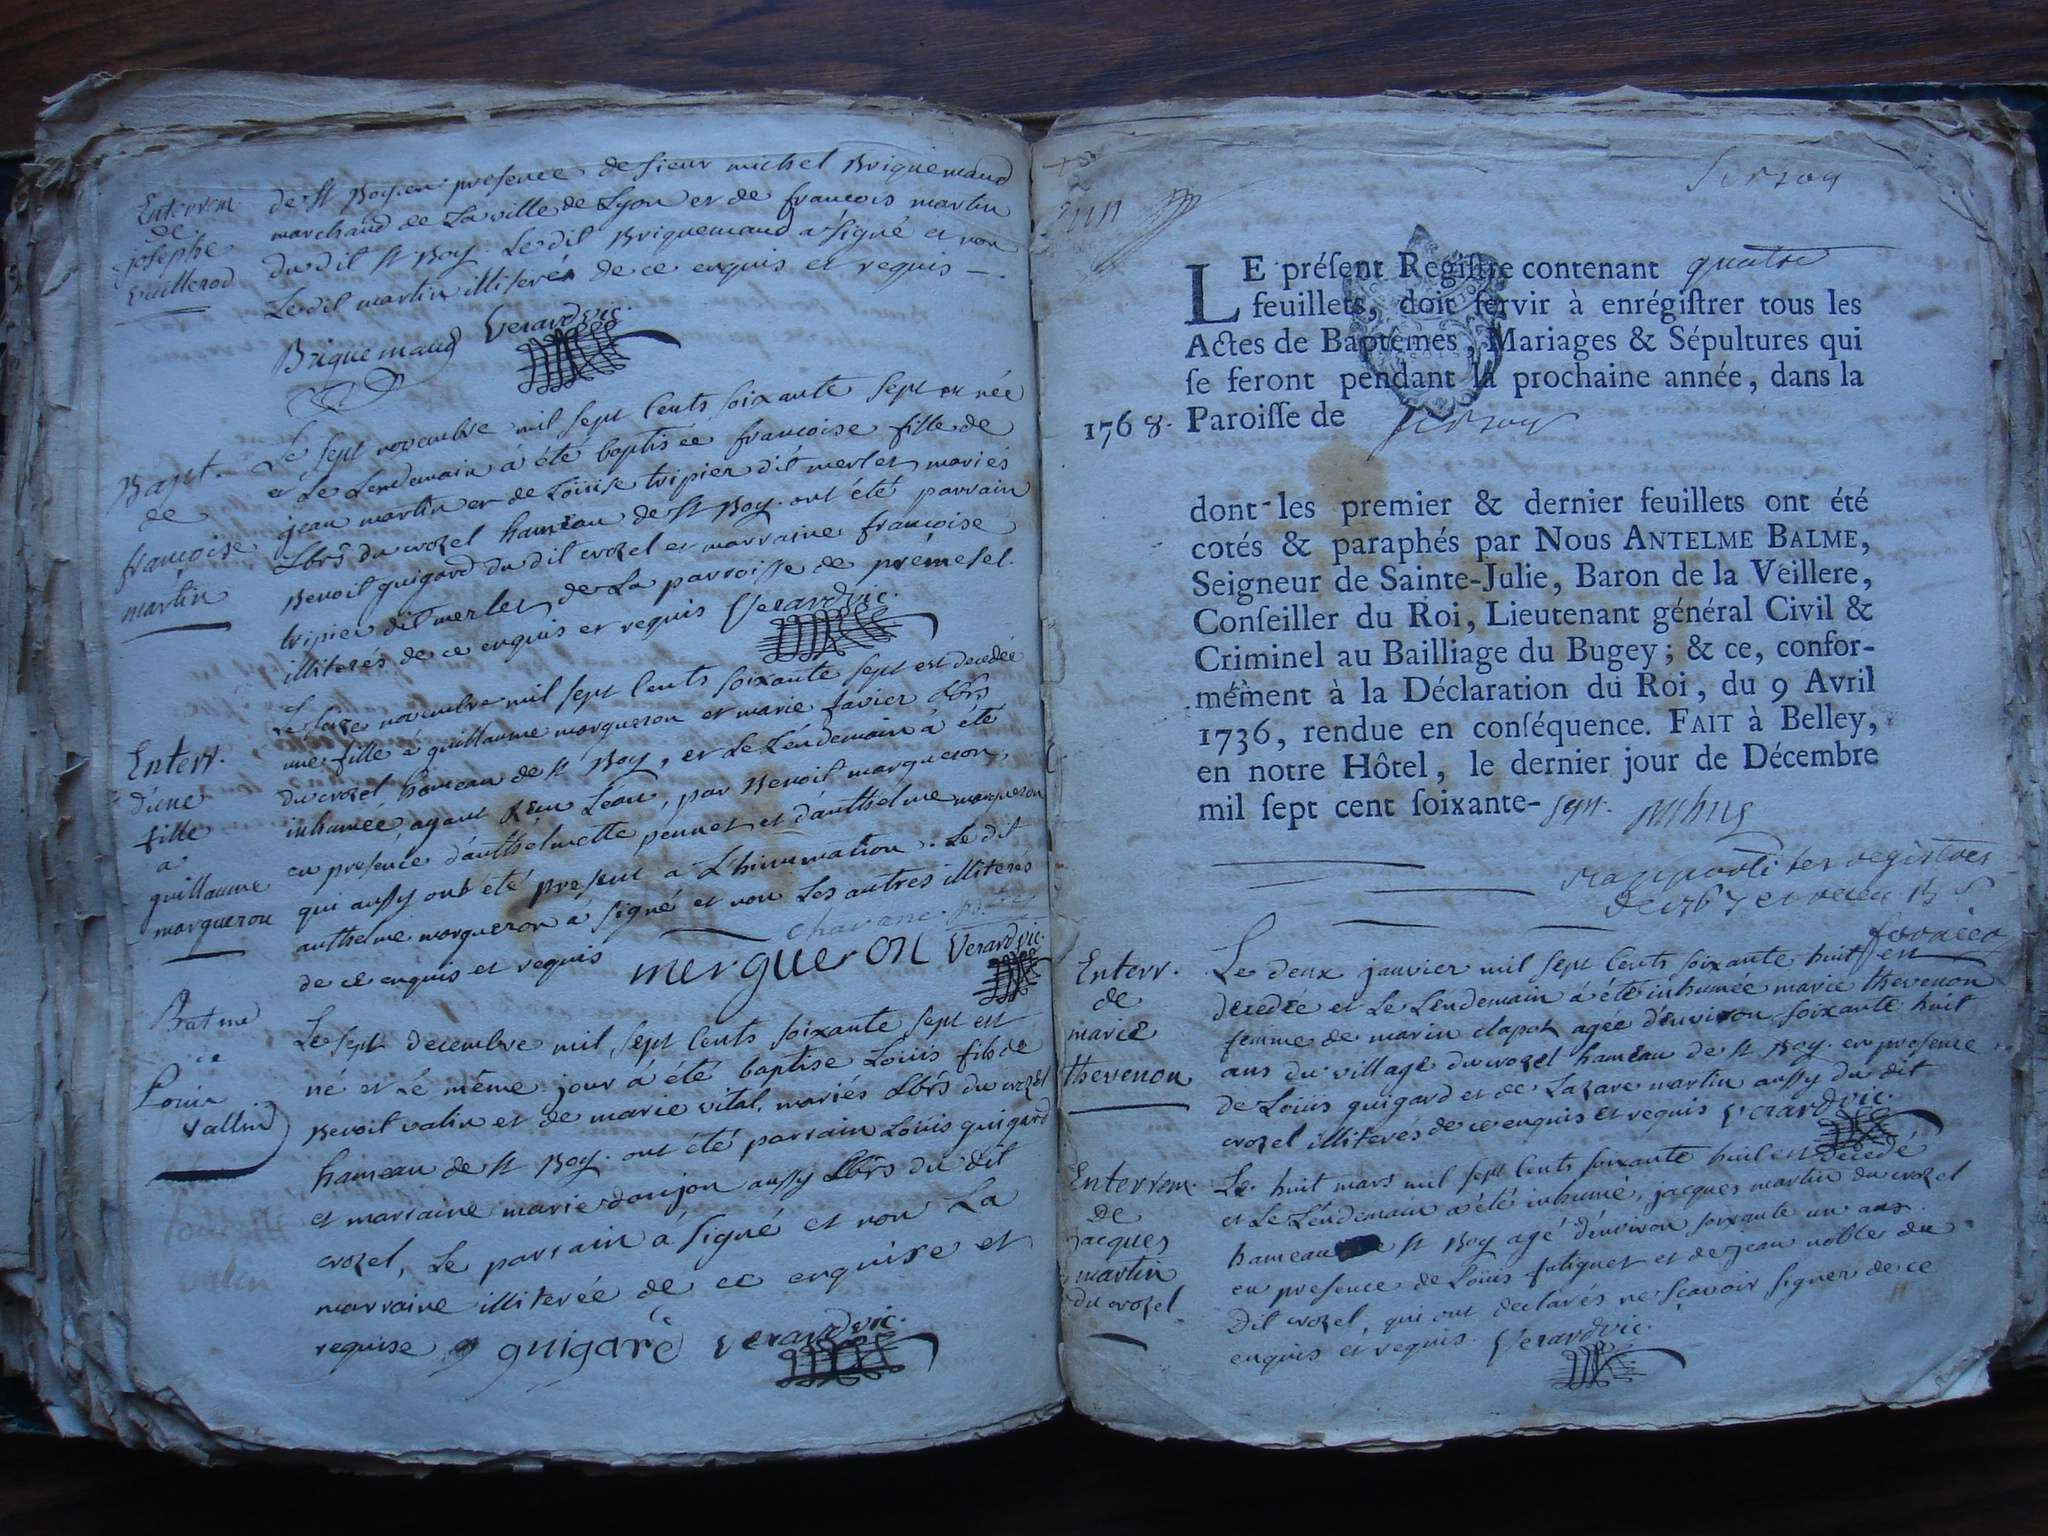 Enterrem
de
josephe
vuillerod
de St Boy. en presence de sieur michel Briquemaud
marchand de La ville de Lyon et de francois martin
du dit St Boy. Le dit Briquemaud a signé et non
Le dit martin illiteré de ce enquis et requis
Briquemaud Verard vic.
Bapt.
de
francoise
martin
Le sept novembre mil sept Cents soixante sept est née
et Le Lendemain a été baptisée francoise fille de
jean martin et de Loüise tripier dit merlet mariés
Lbrs du crozel hameau de St Boy. ont été parrain
Benoit guigard du dit crozel et marraine francoise
tripier dit merlet de La parroisse de prémesel.
illiterés de ce enquis et requis Verard vic.
Enterr.
d'une
fille
a
guillaume
margueron
Le seize novembre mil sept Cents soixante sept est decedée
une fille a guillaume margueron et marie favier Lbrs
du crozel hameau de St Boy, et Le Lendemain a été
inhumée, ayant reçu L'eau, par Benoit margueron,
en presence d'anthelmette pennet et d'anthelme margueron
qui aussy ont été present a L'hinumation. Le dit
anthelme margueron a signé et non Les autres illiterés
de ce enquis et requis
mergueron Verard vic.
Louis
vallin
Le sept decembre mil sept Cents soixante sept est
né et Le même jour a été baptise Loüis fils de
Benoit valin et de marie vital, mariés Lbrs du crozel
hameau de St Boy. ont été parrain Loüis guigard
et marraine marie donjon aussy Lbrs du dit
crozel, Le parrain a signé et non La
marraine illiterée de ce enquise et
requise guigard Verard vic.
LE préſent Regiſtre contenant quatre
feuillets, doit ſervir à enrégiſtrer tous les
Actes de Baptêmes, Mariages & Sépultures qui
ſe feront pendant la prochaine année, dans la
1768. Paroiſſe de
dont les premier & dernier feuillets ont été
cotés & paraphés par Nous ANTELME BALME,
Seigneur de Sainte-Julie, Baron de la Veillere,
Conſeiller du Roi, Lieutenant général Civil &
Criminel au Bailliage du Bugey; & ce, confor-
mément à la Déclaration du Roi, du 9 Avril
1736, rendue en conſéquence. FAIT à Belley,
en notre Hôtel, le dernier jour de Décembre
mil ſept cent ſoixante-sept.
Enterr.
de
marie
thevenon
Le deux janvier mil sept Cents soixante huit est
decedée et Le Lendemain a été inhumée marie thevenon
femme de marin clapot agée d'environ soixante huit
ans du village du crozel hameau de St Boy. en presence
de Loüis guigard et de Lazare martin aussy du dit
crozel illiteres de ce enquis et requis Verard vic.
Enterrem.
de
jacques
martin
du crozel
Le huit mars mil sept Cents soixante huit est decedé
et Le Lendemain a été inhumé, jacques martin du crozel
hameau de St Boy agé d'environ soixante un ans.
en presence de Loüis futiguet et de jean nobles du
dit crozel, qui ont declarés ne scavoir signer de ce
enquis et requis. Verard vic.